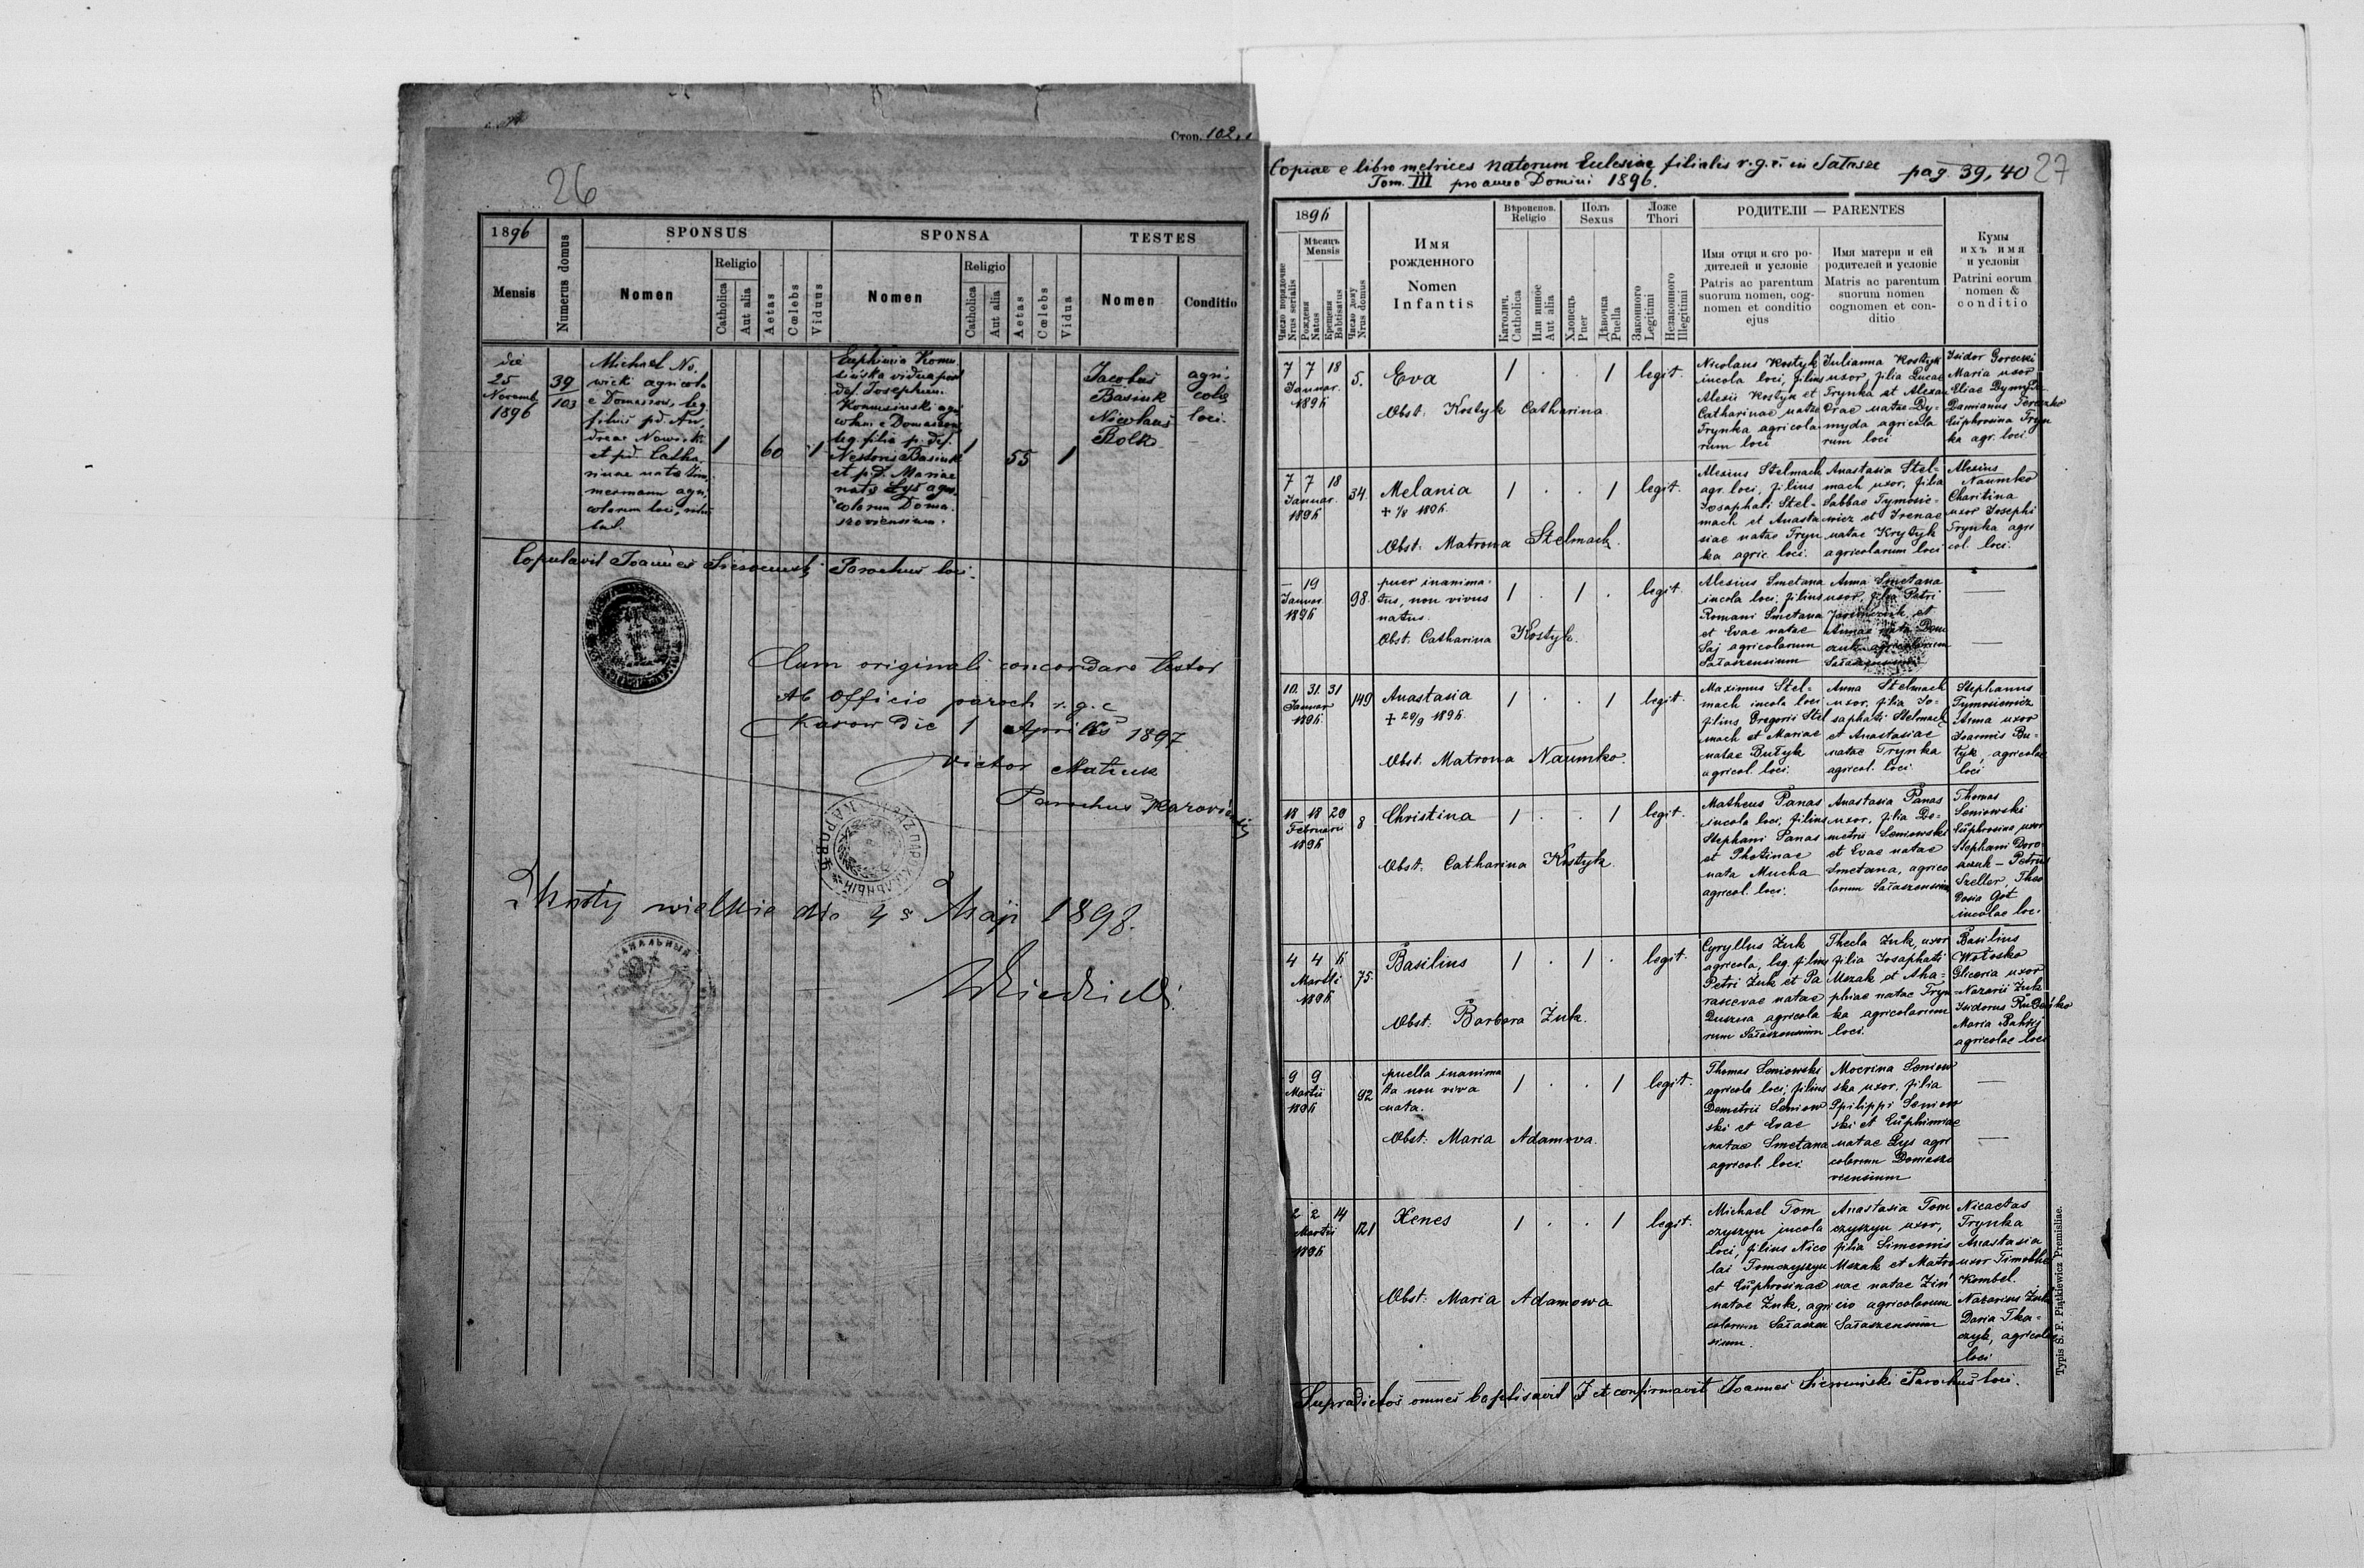 Стор. 102
26
1896
Numerus domus
SPONSUS
SPONSA
TESTES
Mensis
Nomen
Religio
Catholica
Aut alia
Aetas
Cœlebs
Vidus
Nomen
Religio
Catholica
Aut alia
Aetas
Cœlebs
Vidua
Nomen
Conditio
die
25
Novemb.
1896
39
103
Michael No-
wicki agricola
e Domaszow, leg.
filius p.d. An-
dreae Nowicki
et p.d. Catha-
rinae nata Zim-
mermann agri-
colarum loci
1
60
1
Euphimia Komu
sinska vidua post
def. Josephum
Komusinski agri
colam e Domaszow
leg. filia p. def.
Nestoris Basiuk
et p.d. Mariae
nata Lys agri-
colarum Doma-
szoviensium.
1
55
1
Jacobus
Basiuk
Nicolaus
Rolko
agri-
colae
loci.
Copulavit Joannes Sieroczinski Parochus loci.
Cum originali concordare testor
Ab Officio paroch r. g. c
Karow die 1 Aprilis 1897
Victor Matiuk
Parochus Karoviensis
Mosty wielkie die 4 s Maji 1898.
Copiae e libro metrices Natorum Eclesiae filialis r. g. c. in Sałasze pag. 39, 40
27
Tom. III pro anno Domini 1896.
1896
Число порядочне
Nrus serialis
Мѣсяць
Mensis
Рожденя
Natus
Крещеня
Babtisatus
Число дому
Nrus domus
Имя
рожденного
Nomen
Infantis
Вѣроиспов.
Religio
Католич.
Catholica
Или инное
Aut alia
Полъ
Sexus
Хлопець
Puer
Дѣвочка
Puella
Ложе
Thori
Законного
Legitimi
Незаконного
Illegitimi
РОДИТЕЛИ — PARENTES
Имя отця и єго ро-
дителей и условіе
Patris ac parentum
suorum nomen, cog-
nomen et conditio
ejus
Имя матери и ей
родителей и условіе
Matris ac parentum
suorum nomen
cognomen et con-
ditio
Кумы
ихъ имя
и условія
Patrini eorum
nomen &
conditio
7 7 18
Januar.
1896
5.
Eva
1 . . 1 legit.
Obst. Kostyk Catharina.
Nicolaus Kostyk
incola loci, filius
Alexii Kostyk et
Catharinae natae
Trynka agricola
rum loci
Julianna Kostyk
uxor, filia Lucae
Trynka et Alexan
drae natae Dy-
myda agricola
rum loci
Isidor Gorecki
Maria uxor
Eliae Dymyda
Damianus Tereszko
Euphrosina Tryn
ka agr. loci
7 7 18
Januar.
1896
34.
Melania
+ 1/8 1896.
1 . . 1 legit.
Obst. Matrona Stelmach.
Alexius Stelmach
agr. loci, filius
Josaphati Stel-
mach et Anasta
siae natae Tryn
ka agric. loci.
Anastasia Stel-
mach uxor, filia
Sabbae Tymosie-
wicz et Irenae
natae Krytyk
agricolarum loci
Alexius
Naumko
Charitina
uxor Josephi
Trynka agri
col. loci.
— 19
Januar.
1896
98.
puer inanima-
tus, non vivus
natus.
1 . 1 . legit.
Obst. Catharina Kostyk.
Alexius Smetana
incola loci, filius
Romani Smetana
et Evae natae
Saj agricolarum
Sałaszensium
Anna Smetana
uxor, filia Petri
et
Annae nata Dem
czuk agricolarum
Sałaszensium
10. 31. 31
Januar
1896.
149
Anastasia
+ 20/9 1896.
1 . . 1 legit.
Obst. Matrona Naumko.
Maximus Stel-
mach incola loci
filius Gregorii Stel
mach et Mariae
natae Butyk
agricol. loci.
Anna Stelmach
uxor, filia Jo-
saphati Stelmach
et Anastasiae
natae Trynka
agricol. loci.
Stephanus
Tymosiewicz
Anna uxor
Joannis Bu-
tyk, agricolae
loci
18 18 20
Februarii
1896
8
Christina
1 . . 1 legit.
Obst. Catharina Kostyk
Matheus Panas
incola loci, filius
Stephani Panas
et Photinae
nata Mucha
agricol. loci.
Anastasia Panas
uxor, filia De-
metrii Seniowski
et Evae natae
Smetana, agrico
larum Sałaszensium
Thomas
Seniowski
Euphrosina uxor
Stephani Doro-
szuk — Petrus
Szeller, Theo
dosia Got
incolae loci
4 4 6
Martii
1896
75.
Basilius
1 . 1 . legit.
Obst. Barbara Żuk.
Cyryllus Żuk
agricola, leg. filius
Petri Żuk et Pa
rascevae natae
Duszna agricola
rum Sałaszensium
Thecla Żuk, uxor
filia Josaphati
Mszak et Aha-
phiae natae Tryn
ka agricolarum
loci.
Basilius
Wołosko
Gliceria uxor
Nazarii Żuk
Isidorus Rudeńko
Maria Bahrij
agricolae loci
9 9
Martii
1896
92
puella inanima
ta non viva
nata.
1 . . 1 legit.
Obst. Maria Adamowa.
Thomas Seniowski
agricola loci, filius
Demetrii Seniow
ski et Evae
natae Smetana
agricol. loci.
Mocrina Seniow
ska uxor, filia
Philippi Seniow
ski et Euphimiae
natae Lys agri
colarum Domaszo
viensium
2 2 14
Martii
1896
121
Xenes
1 . . 1 legit.
Obst. Maria Adamowa
Michael Tom
czyszyn incola
loci, filius Nico
lai Tomczyszyn
et Euphrosinae
natae Żuk, agri
colarum Sałaszen
sium.
Anastasia Tom
czyszyn uxor,
filia Simeonis
Mszak et Matro
nae natae Zin
cio agricolarum
Sałaszensium
Nicaetas
Trynka
Anastasia
uxor Timothei
Kombel.
Nazarius Żuk
Daria Tka-
czyk, agricolae
loci
Supradictos omnes baptisavit et confirmavit Joannes Sieroczinski Parochus loci.
Typis S. F. Piątkiewicz Premisliae.